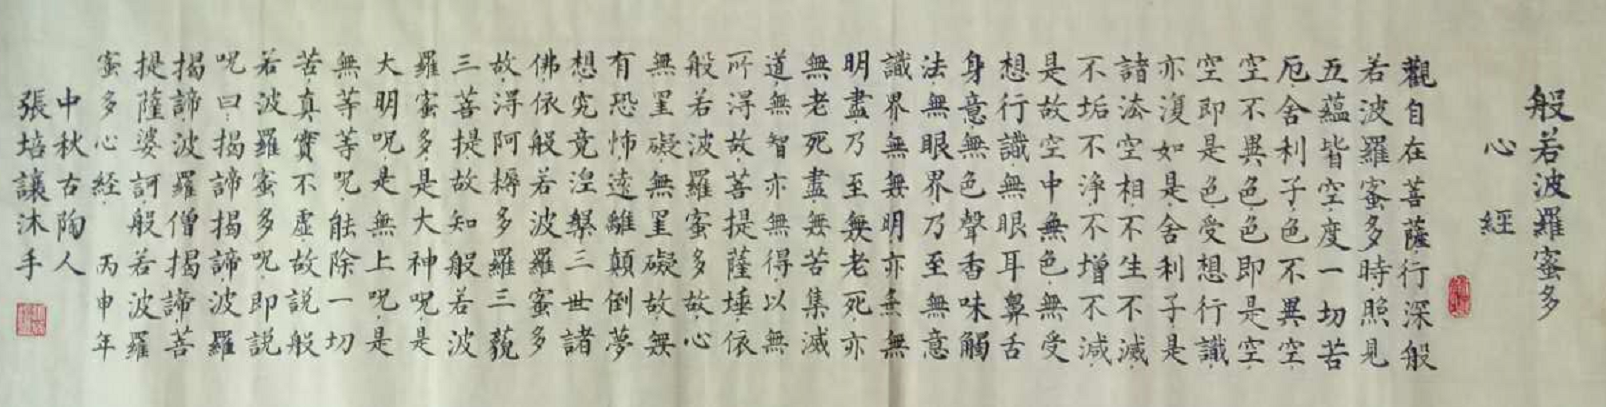 般若波羅蜜多
心經
觀自在菩薩行深般
若波羅蜜多時照見
五蘊皆空度一切苦
厄舍利子色不異空
空不異色色即是空
空即是色受想行識
亦復如是舍利子是
諸法空相不生不滅
不垢不淨不增不減
是故空中無色無受
想行識無眼耳鼻舌
身意無色聲香味觸
法無眼界乃至無意
識界無無明亦無無
明盡乃至無老死亦
無老死盡無苦集滅
道無智亦無得以無
所得故菩提薩埵依
般若波羅蜜多故心
無罣礙無罣礙故無
有恐怖遠離顛倒夢
想究竟涅槃三世諸
佛依般若波羅蜜多
故得阿耨多羅三藐
三菩提故知般若波
羅蜜多是大神呪是
大明呪是無上呪是
無等等呪能除一切
苦真實不虛故説般
若波羅蜜多呪即説
呪曰揭諦揭諦波羅
揭諦波羅僧揭諦菩
提薩婆訶般若波羅
蜜多心經 丙申年
中秋古陶人
張培讓沐手